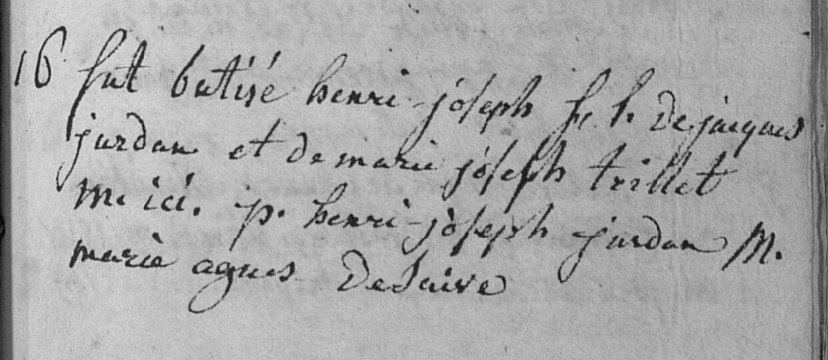 16 fut batisé henri-joseph f. l. de jacques
jurdan et de marie joseph trillet
m. ici. p. henri-joseph jurdan M.
marie agnes Defaive